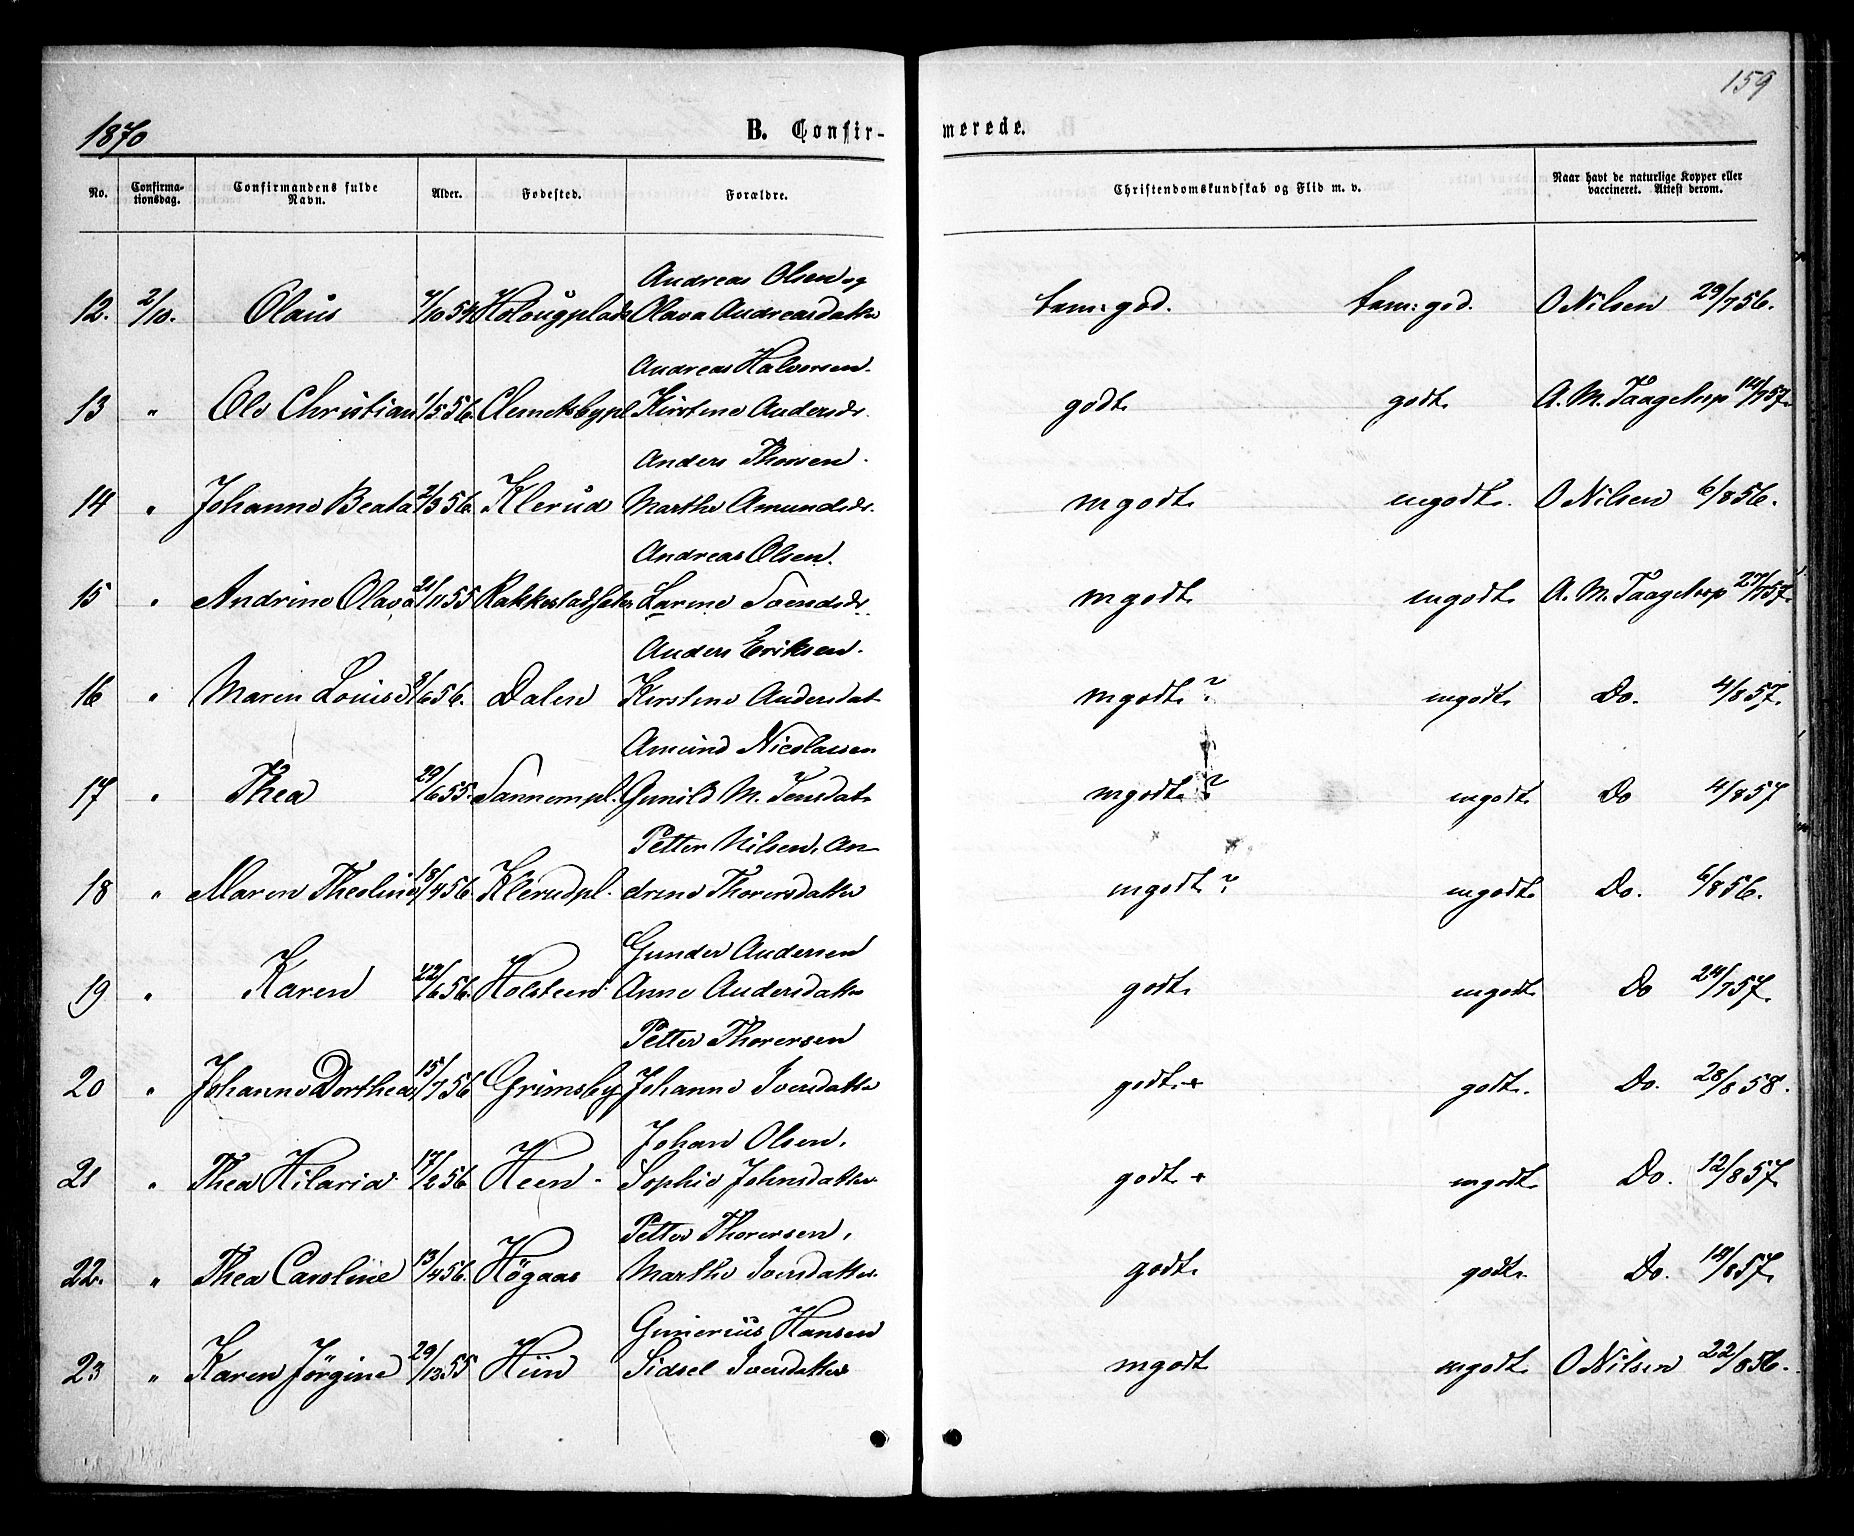 159
1870 B. Confirmerede.
No. Confirmationsdag. Confirmandens fulde Navn. Alder. Fødested. Forældre. Christendomskundskab og Flid m. v. Naar havt de naturlige Kopper eller vaccineret. Attest derom.
Andreas Olsen og
12. 2/10. Olaus /10 54 Olava Andreasdatter tem: god. tem: god. O Nilsen 29/7 56.
Andreas Halvorsen.
13 " Ole Christian 1/5 56. Clemetsbypl. Kirstine Andersdr. godt godt. A. M. Taagstrup 14/7 57.
Anders Thorsen.
14 " Johanne Beata 2/3 56. Klerud Marthe Amundsdr. mgodt mgodt. O Nilsen 6/8 56.
Andreas Olsen.
15 " Andrine Olava 21/11 55 Larine Svendsdr. mgodt mgodt. A. M. Taagstrup 27/7 57.
Anders Eriksen.
16 " Maren Louise 3/6 56. Dalen Kirstine Andersdat mgodt? mgodt Do. 4/8 57.
Amund Nicolaisen
17 " Thea 29/6 55. Sannempl. Gunild M. Jensdat. mgodt? mgodt Do 4/8 57
Petter Nilsen, An-
18 " Maren Theoline 18/4 56. Klerudpl. drine Thorersdatter mgodt? mgodt. Do. 6/8 56.
Gunder Andersen
19 " Karen 22/6 56. Holsteen Anne Andersdatter godt. mgodt Do 24/7 57.
Petter Thorersen
20 " Johanne Dorthea 15/7 56 Grimsby Johanne Iversdatter godt. + godt. Do. 28/8 58.
Johan Olsen,
21 " Thea Hilaria 17/2 56 Heen - Sophie Johnsdatter. godt. + mgodt. Do. 12/8 57.
Petter Thorersen,
22. " Thea Caroline 13/4 56. Högaas Marthe Iversdatter. godt. godt. Do. 14/8 57.
Gunerius Hansen
23 " Karen Jörgine 29/12 55 Hiin Sidsel Iversdatter mgodt mgodt. O Nilsen 22/8 56.